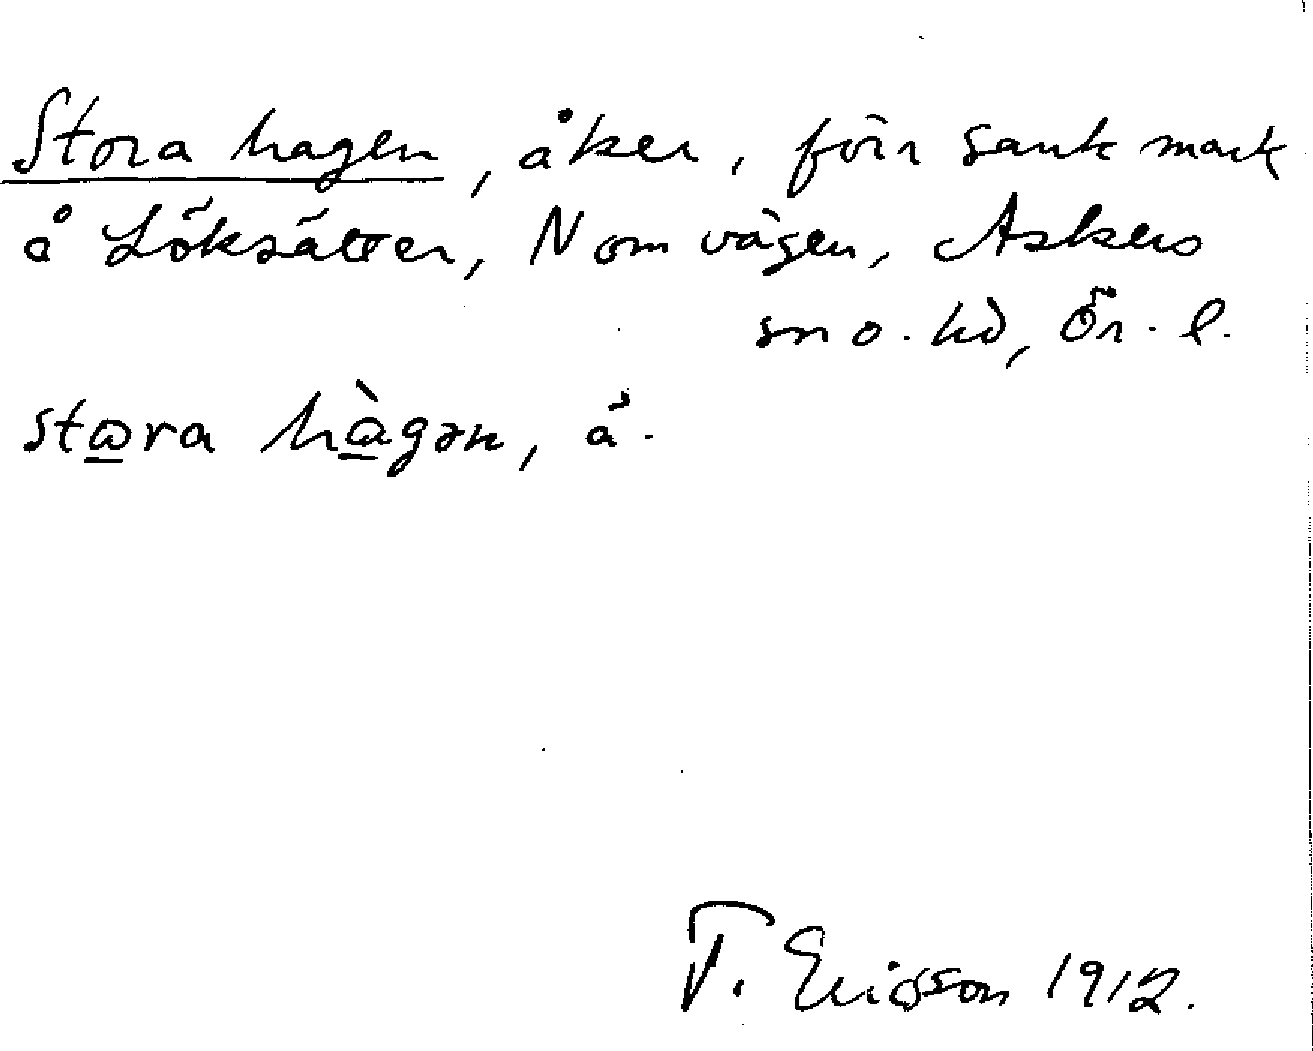 Stora hagen, åker, förr sank mark
å Löksätter, N om vägen, Askers
sn o. hd, Ör. l.
stωra hàgən, å.
T. Ericsson 1912.